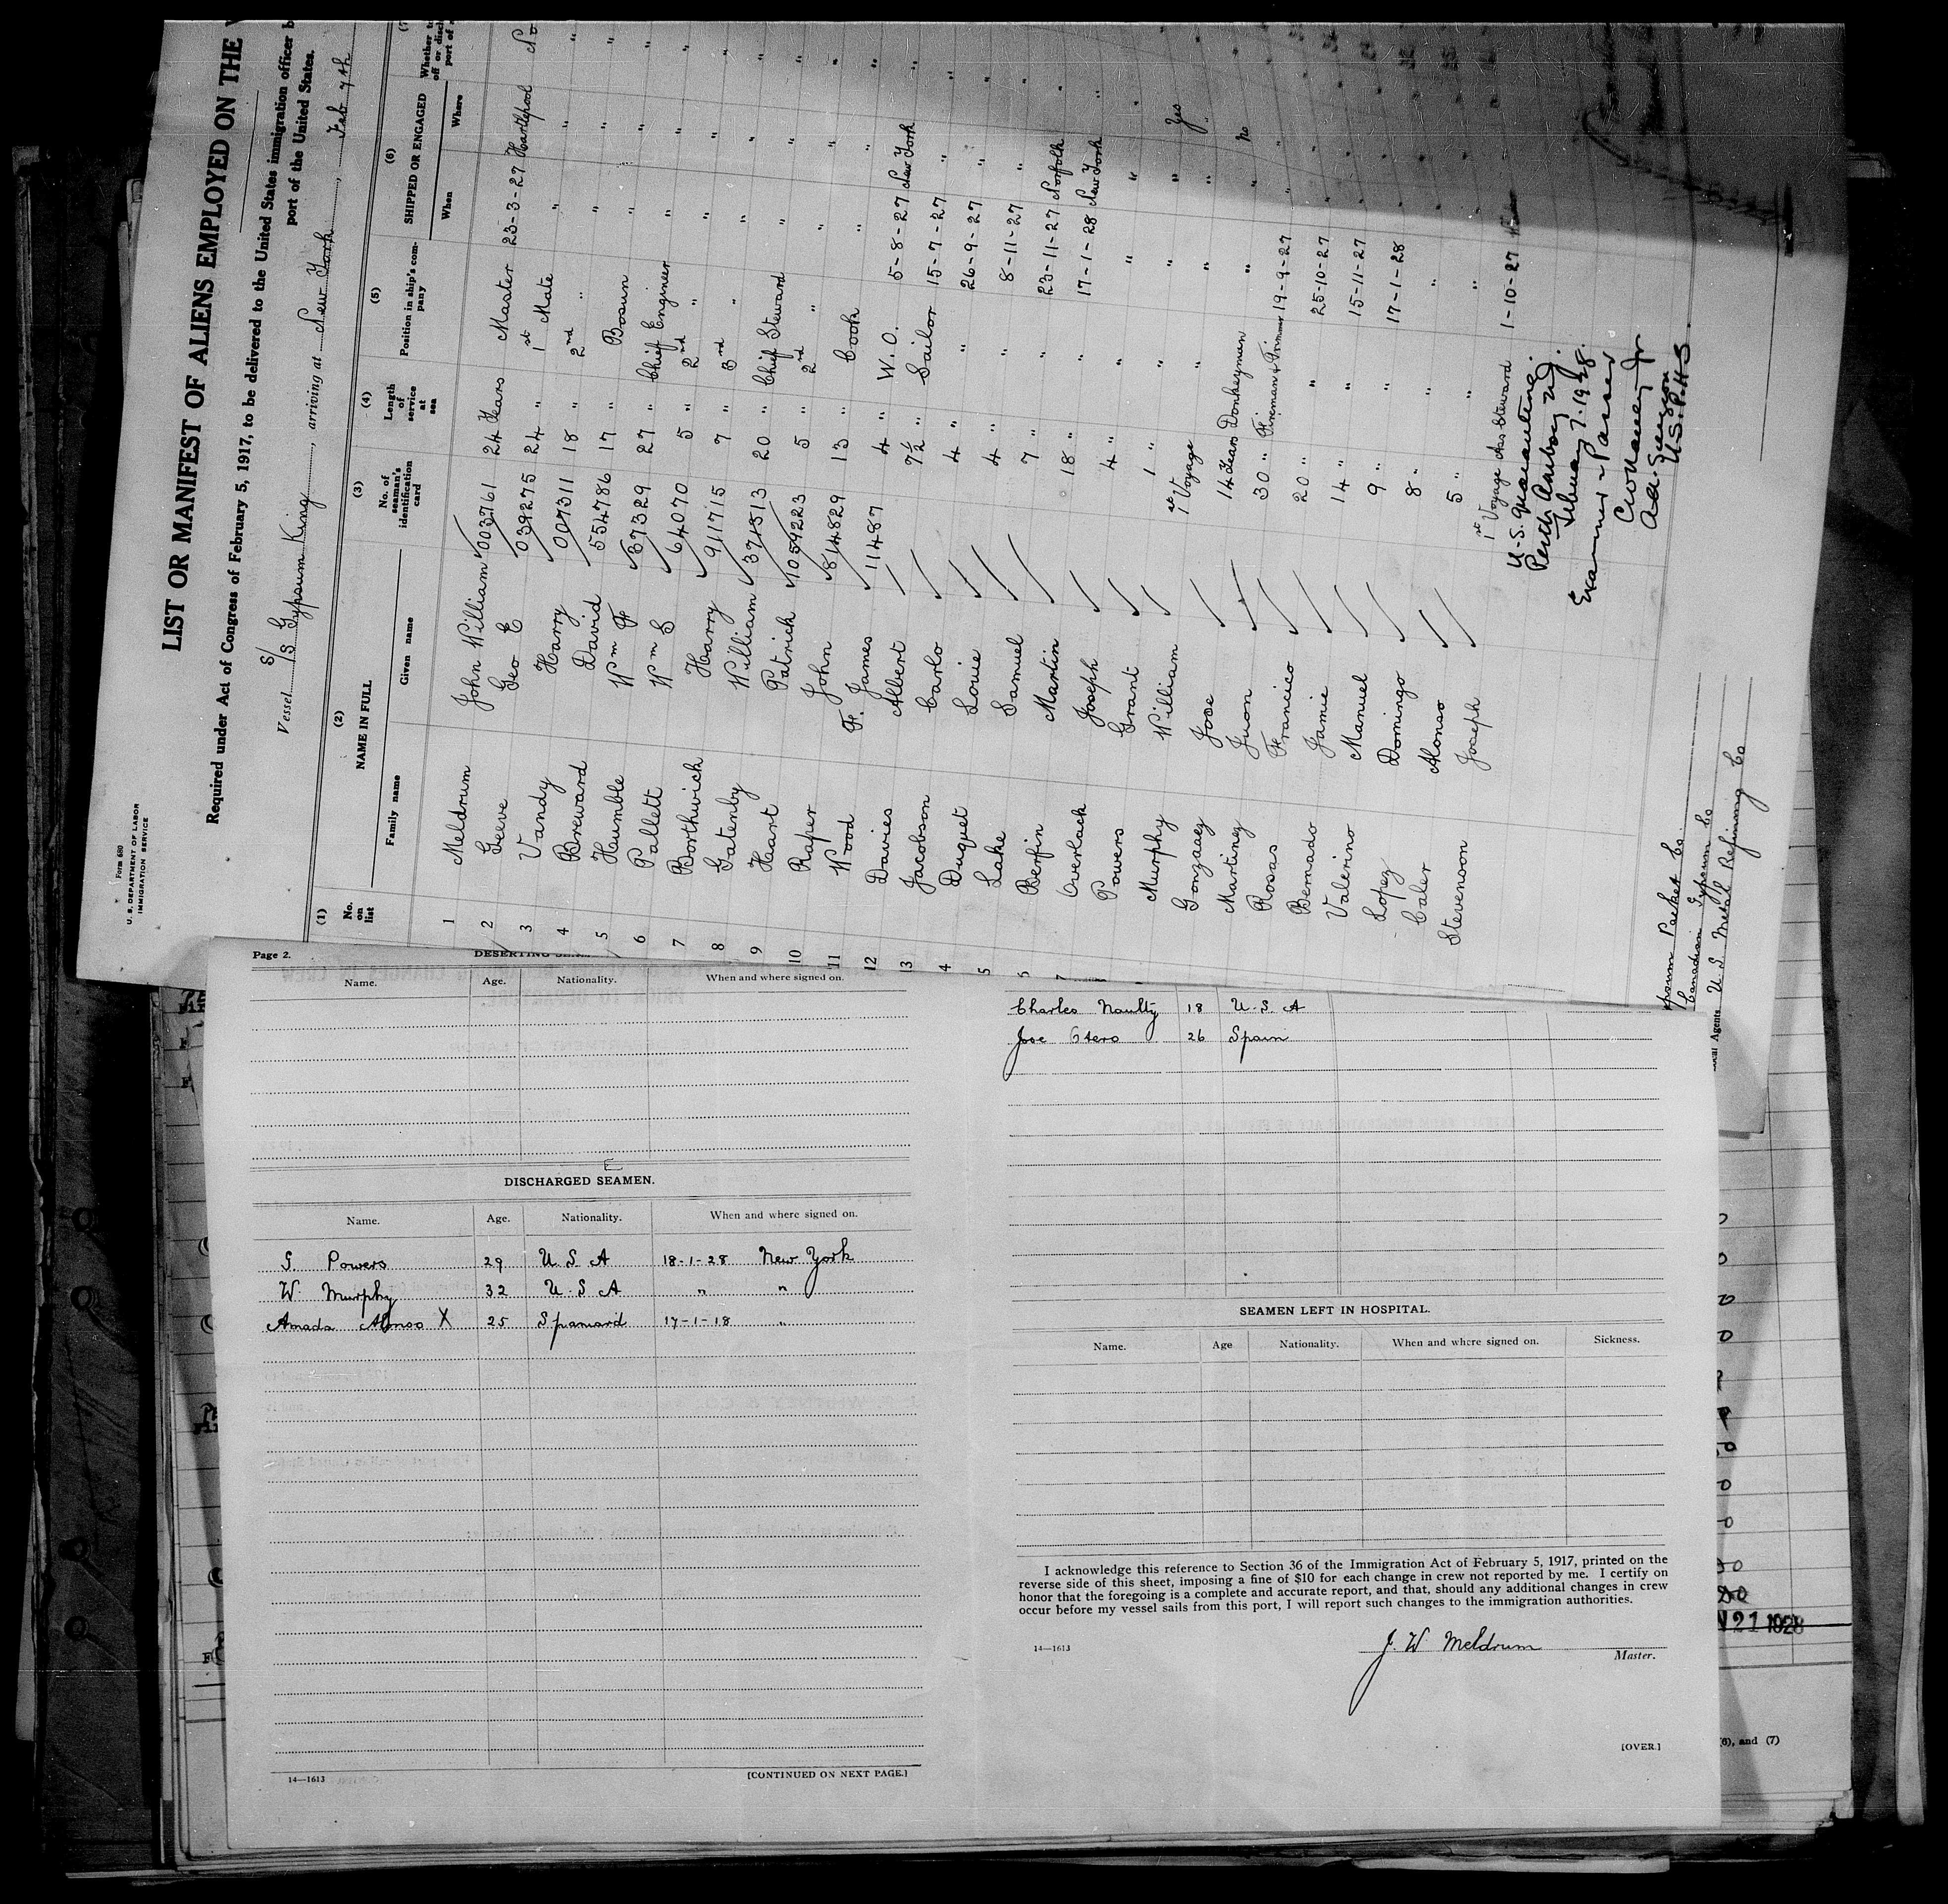 Form 680
U. S. DEPARTMENT OF LABOR
IMMIGRATION SERVICE
LIST OR MANIFEST OF ALIENS EMPLOYED ON THE
Required under Act of Congress of February 5, 1917, to be delivered to the United States immigration officer
port of the United States.
Vessel S/S Gypsum King, arriving at New York, Feb 7th
(1) (2) (3) (4) (5) (6)
No. on list NAME IN FULL No. of seaman's identification card Length of service at sea Position in ship's company SHIPPED OR ENGAGED Whether
Family name Given name When Where
1 Meldrum John William 003761 24 Years Master 23-3-27 Hartlepool No
2 Geeve Geo E 039275 24 " 1st Mate " " "
3 Vandy Harry 007311 18 " 2nd " " " "
4 Breward David 554786 17 " Bosun " " "
5 Humble Wm F 37329 27 " Chief Engineer " " "
6 Pallett Wm S 64070 5 " 2nd " " " "
7 Borthwich Harry 911715 7 " 3rd " " " "
8 Gatenby William 374513 20 " Chief Steward " " "
9 Heart Patrich 1059223 5 " 2nd " " " "
10 Raper John 814829 13 " Cook " " "
11 Wood F. James 11487 4 " W. O. 5-8-27 New York "
12 Davies Albert 7½ " Sailor 15-7-27 " "
13 Jacobson Carlo 4 " " 26-9-27 " "
4 Duquet Louie 4 " " 8-11-27 " "
5 Lake Samuel 7 " " 23-11-27 Norfolk "
6 Berfin Martin 18 " " 17-1-28 New York "
7 Overlach Joseph 4 " " " "
Powers Grant 1 " " " " Yes
Murphy William 1st Voyage " " " "
Gonzaaez Jose 14 Years Donkeyman " " no
Martinez Juon 30 " Fireman & Trimmer 19-9-27 "
Rosas Franico 20 " " 25-10-27 "
Bernado Jamie 14 " " 15-11-27 "
Valerino Manuel 9 " " 17-1-28 "
Lopez Domingo 8 " " " "
Caler Alonso 5 " " " "
Stevenson Joseph 1st Voyage Ass Steward 1-10-27
U.S. Quarantine
Perth Amboy N.J.
February 7-1928.
Examined & Passed
Act. Surgeon
U.S.P.H.S.
Packet Co.
Canadian Gypsum Co
Agents U. S. Metall Refining Co
Page 2.
Name. Age. Nationality. When and where signed on.
DISCHARGED SEAMEN.
Name. Age. Nationality. When and where signed on.
G. Powers 29 U S A 18-1-28 New York
W. Murphy 32 U.S A " "
Amada Alonso X 25 Spaniard 17-1-18 "
14—1613
[CONTINUED ON NEXT PAGE.]
Charles Naulty 18 U.S. A
Jose Otero 26 Spain
SEAMEN LEFT IN HOSPITAL.
Name. Age Nationality. When and where signed on. Sickness.
I acknowledge this reference to Section 36 of the Immigration Act of February 5, 1917, printed on the
reverse side of this sheet, imposing a fine of $10 for each change in crew not reported by me. I certify on
honor that the foregoing is a complete and accurate report, and that, should any additional changes in crew
occur before my vessel sails from this port, I will report such changes to the immigration authorities.
14—1613
J. W Meldrum
Master.
[OVER.]
21 1928
(6), and (7)